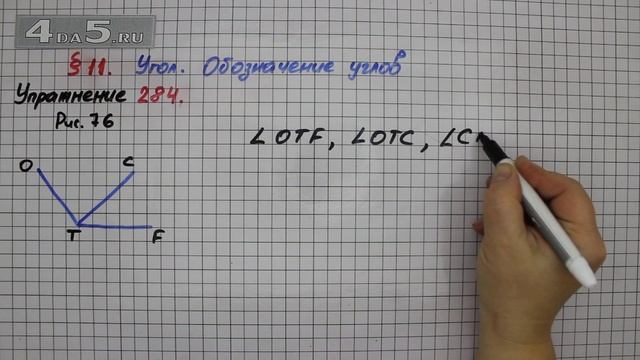 4DA5.RU
§ 11. Угол. Обозначение углов
Упражнение 284.
Рис. 76
∠OTF, ∠OTC, ∠C
O C
T F